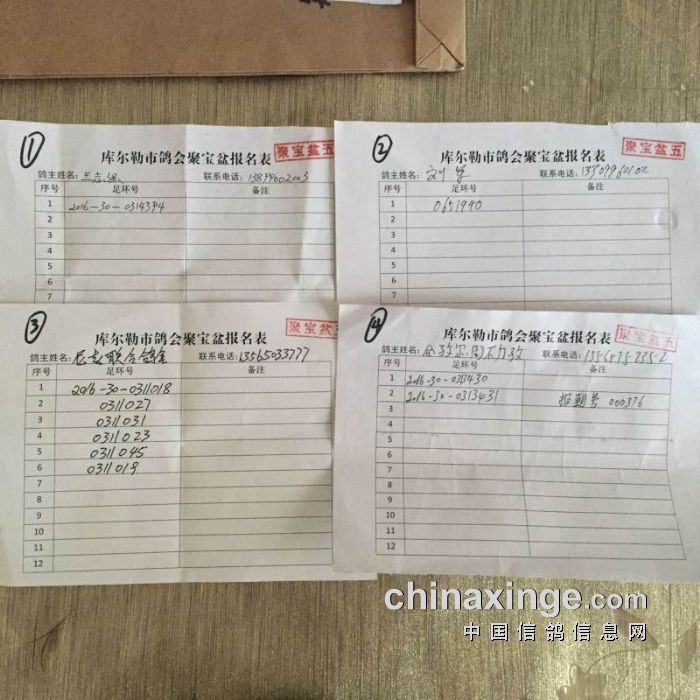 ①
库尔勒市鸽会聚宝盆报名表
聚宝盆五
鸽主姓名: 联系电话:
序号 足环号 备注
1 2016-30-0314394
2
3
4
5
6
7
②
库尔勒市鸽会聚宝盆报名表
聚宝盆五
鸽主姓名: 刘军 联系电话: 13509962102
序号 足环号 备注
1 0651940
2
3
4
5
6
7
③
库尔勒市鸽会聚宝盆报名表
聚宝盆五
鸽主姓名: 联合鸽舍 联系电话: 13565033777
序号 足环号 备注
1 2016-30-0311018
2 0311027
3 0311031
4 0311023
5 0311045
6 0311019
7
8
9
10
11
12
④
库尔勒市鸽会聚宝盆报名表
聚宝盆五
鸽主姓名: 联系电话:
序号 足环号 备注
1 2016-30-0313430
2 2016-30-0313431 报到号 000376
3
4
5
6
7
8
9
10
11
12
chinaxinge.com
中国信鸽信息网